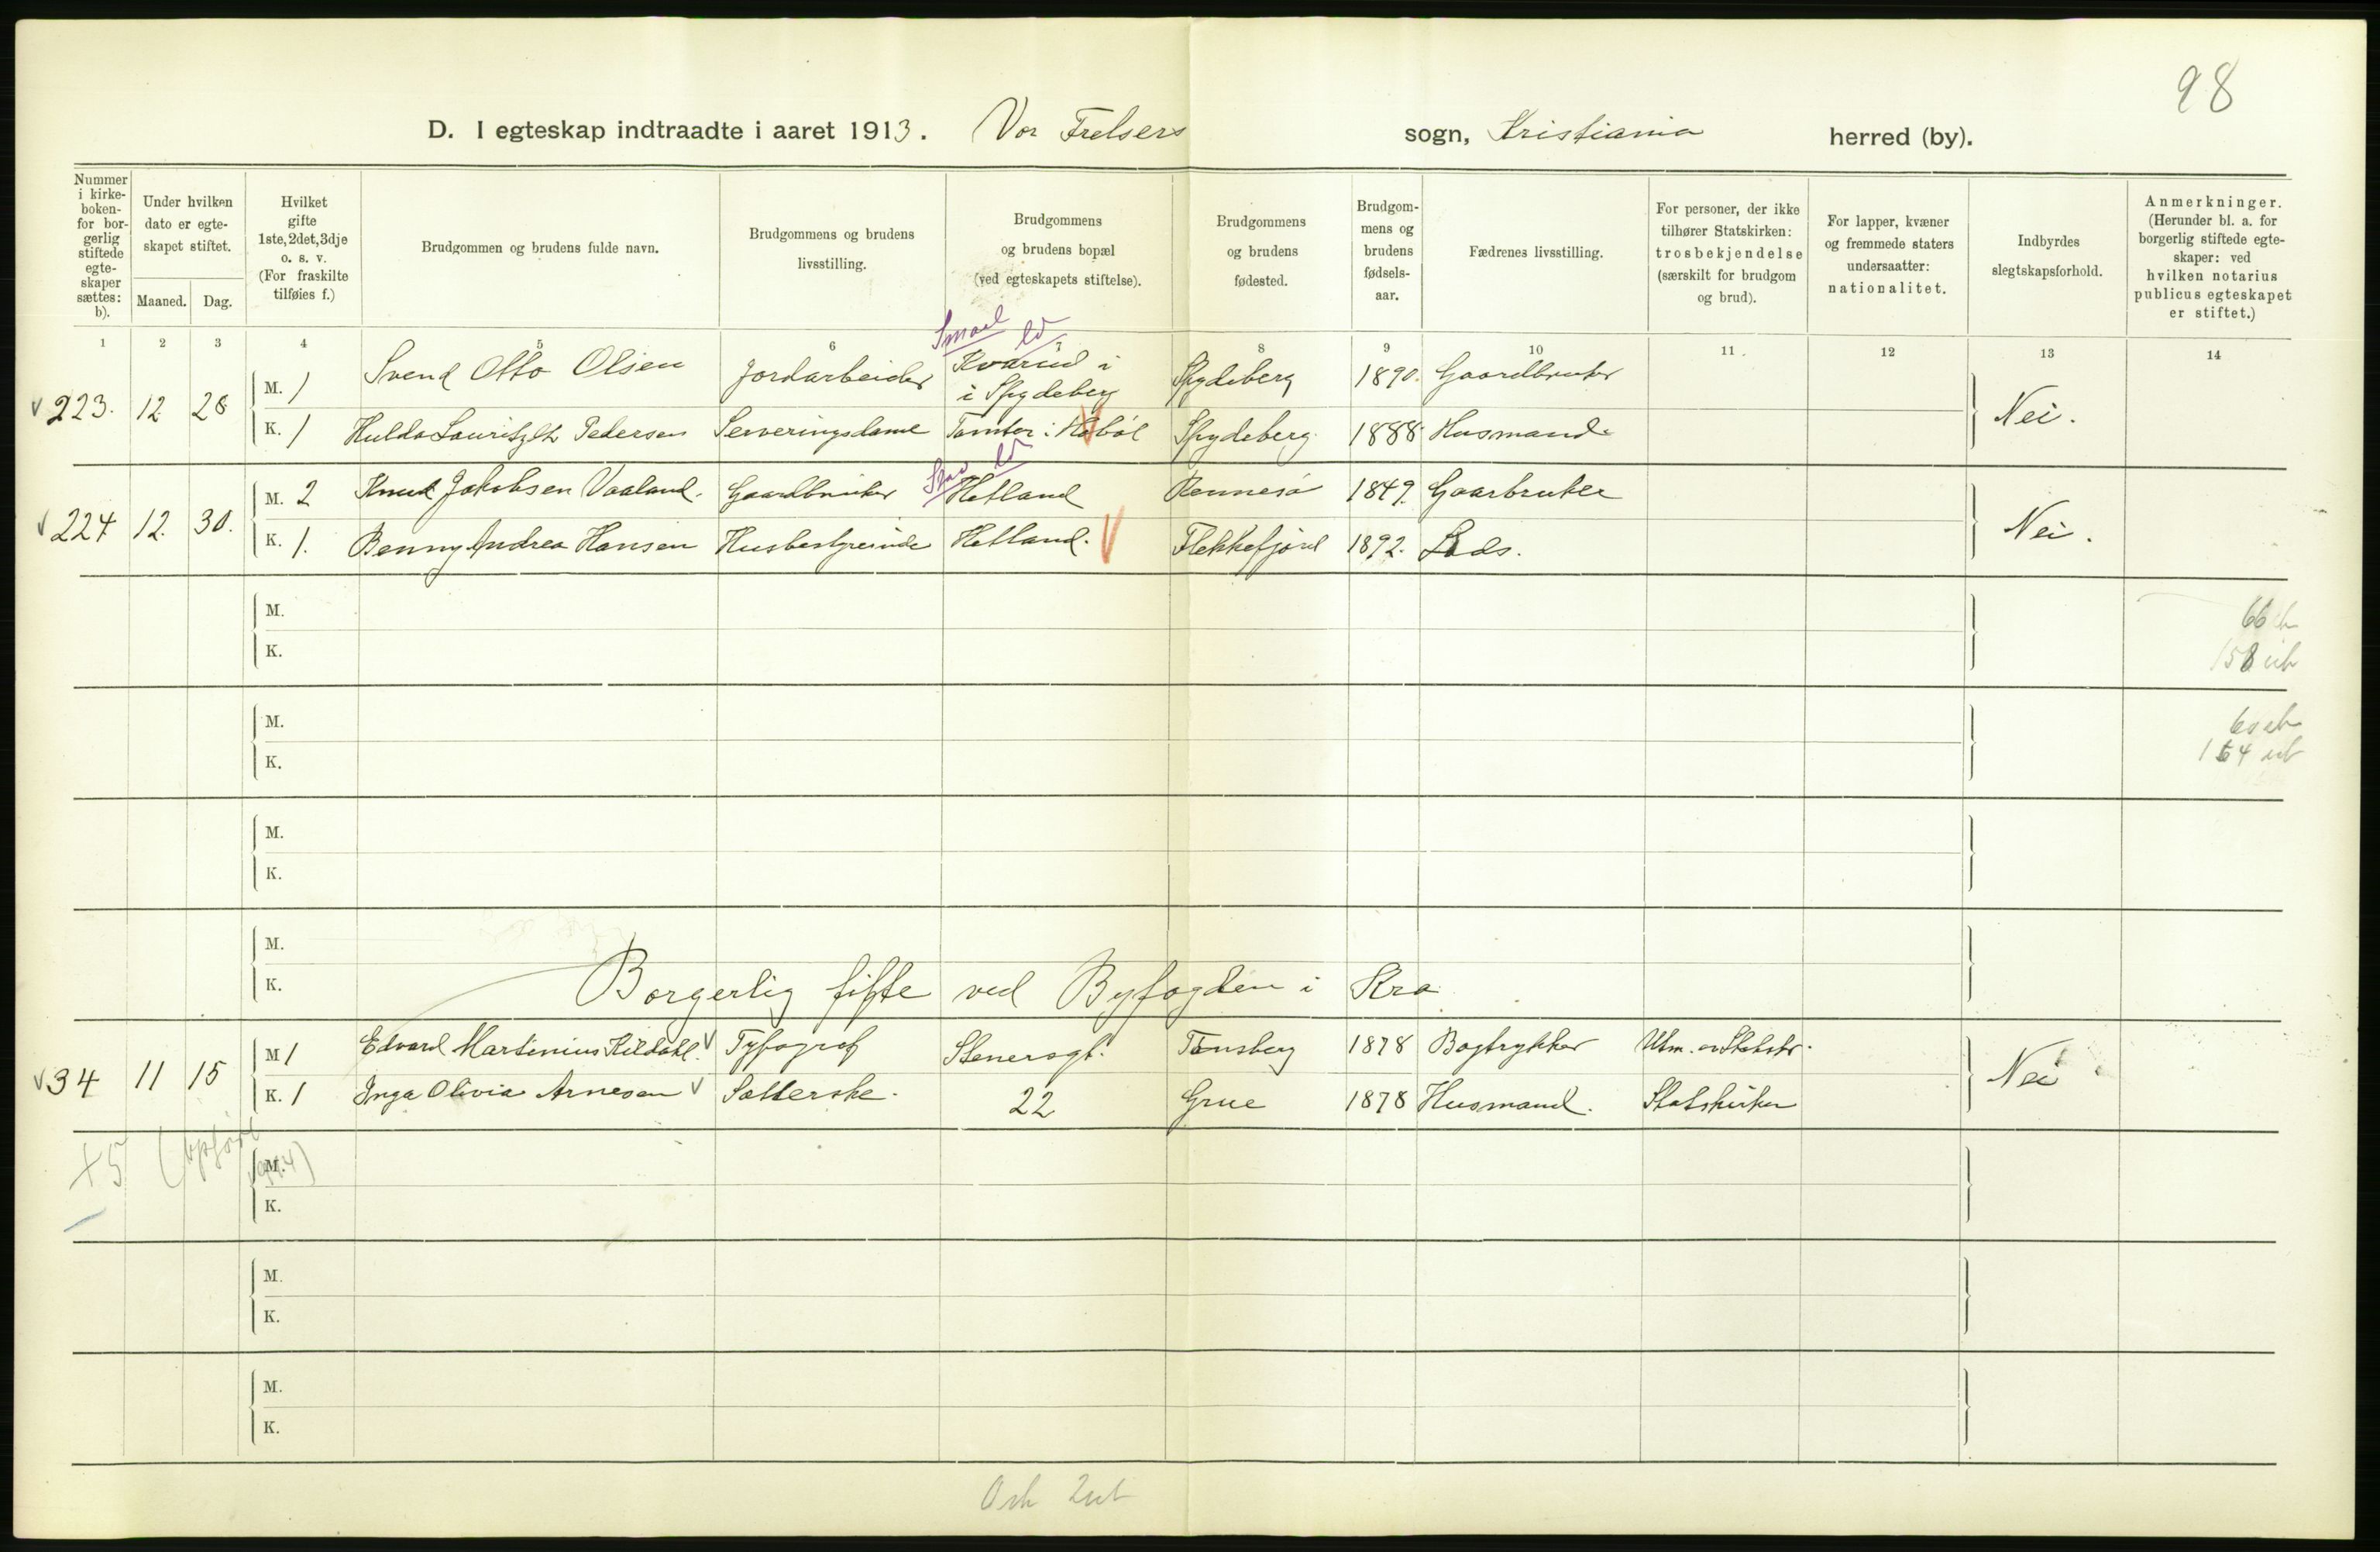 98
D. I egteskap indtraadte i aaret 1913. Vor Frelsers sogn, Kristiania herred (by).
Nummer i kirke- boken- for bor- gerlig stiftede egte- skaper sættes: b).
Under hvilken dato er egte- skapet stiftet.
Maaned. Dag.
Hvilket gifte 1ste, 2det, 3dje o. s. v. (For fraskilte tilføies f.)
Brudgommen og brudens fulde navn.
Brudgommens og brudens livsstilling.
Brudgommens og brudens bopæl (ved egteskapets stiftelse).
Brudgommens og brudens fødested.
Brudgom- mens og brudens fødsels- aar.
Fædrenes livsstilling.
For personer, der ikke tilhører Statskirken: trosbekjendelse (særskilt for brudgom og brud).
For lapper, kvæner og fremmede staters undersaatter: nationalitet.
Indbyrdes slegtskapsforhold.
Anmerkninger. (Herunder bl. a. for borgerlig stiftede egte- skaper: ved hvilken notarius publicus egteskapet er stiftet.)
1 2 3 4 5 6 7 8 9 10 11 12 13 14
Smaal ld
223. 12 28 M. 1 Svend Otto Olsen Jordarbeider Kvarud i i Spydeberg Spydeberg 1890. Gaardbruker Nei.
K. 1 Hulda Lauritze Pedersen Serveringsdame Tomter i Høbøl Spydeberg 1888 Husmand.
ld
224 12. 30. M. 2 Knut Jakobsen Vaaland. Gaardbruker Hetland Rennesø 1849. Gaarbruker Nei.
K. 1. Benny Andrea Hansen Husbestyrerinde Hetland. Flekkefjord 1892. Lods.
M.
K.
66
158 ub
M.
K.
60 eb
164 ub
M.
K.
M.
K.
Borgerlig gifte ved Byfogden i Kra
34 11 15 M 1 Edvard Martinius Kildahl. Typograf Stenersgt. Tønsberg 1878 Bogtrykker Utm. av Statskr. Nei
K. 1 Inga Olivia Arnesen Sætterske. 22 Grue 1878 Husmand. Statskirken
+5 (opført 1914)
M.
K.
M.
K.
M.
K.
2ub